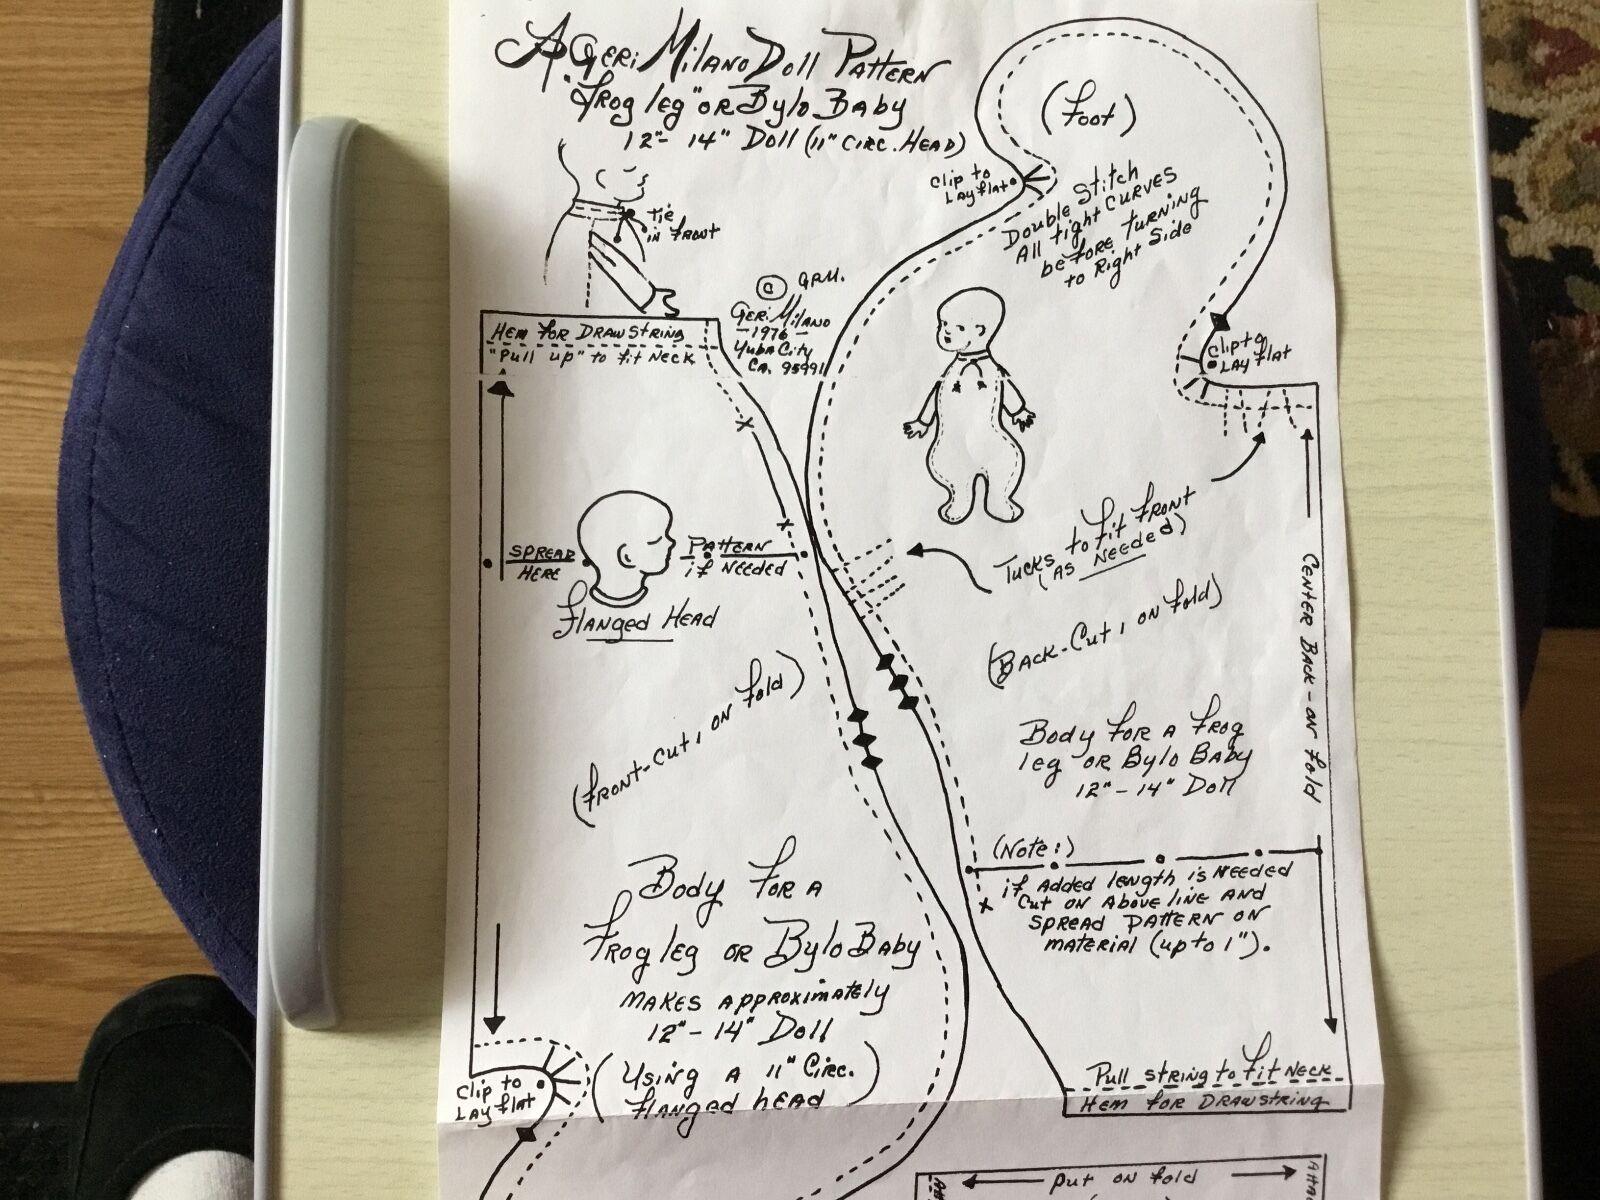 A Geri Milano Doll Pattern
"Frog leg" or Bylo Baby
12"- 14" Doll (11" Circ. Head)
Tie
in Front
© GRM.
Geri Milano
- 1976 -
Yuba City
Ca. 95991
Hem for Drawstring
"Pull up" to fit neck
Spread
Here
Pattern
if needed
Flanged Head
(Front-Cut 1 on fold)
Body for a
Frog leg or Bylo Baby
makes approximately
12"- 14" Doll
(Using a 11" Circ.
flanged head)
Clip to
Lay flat
(Foot)
Clip to
Lay flat
Double Stitch
All tight Curves
before turning
to Right Side
Clip to
Lay flat
Tucks to fit Front
(As Needed)
(Back-Cut 1 on fold)
Center Back - on fold
Body for a Frog
leg or Bylo Baby
12"- 14" Doll
(Note:)
if added length is needed
Cut on above line and
spread pattern on
material (up to 1").
Pull string to fit neck
Hem for Drawstring
put on fold